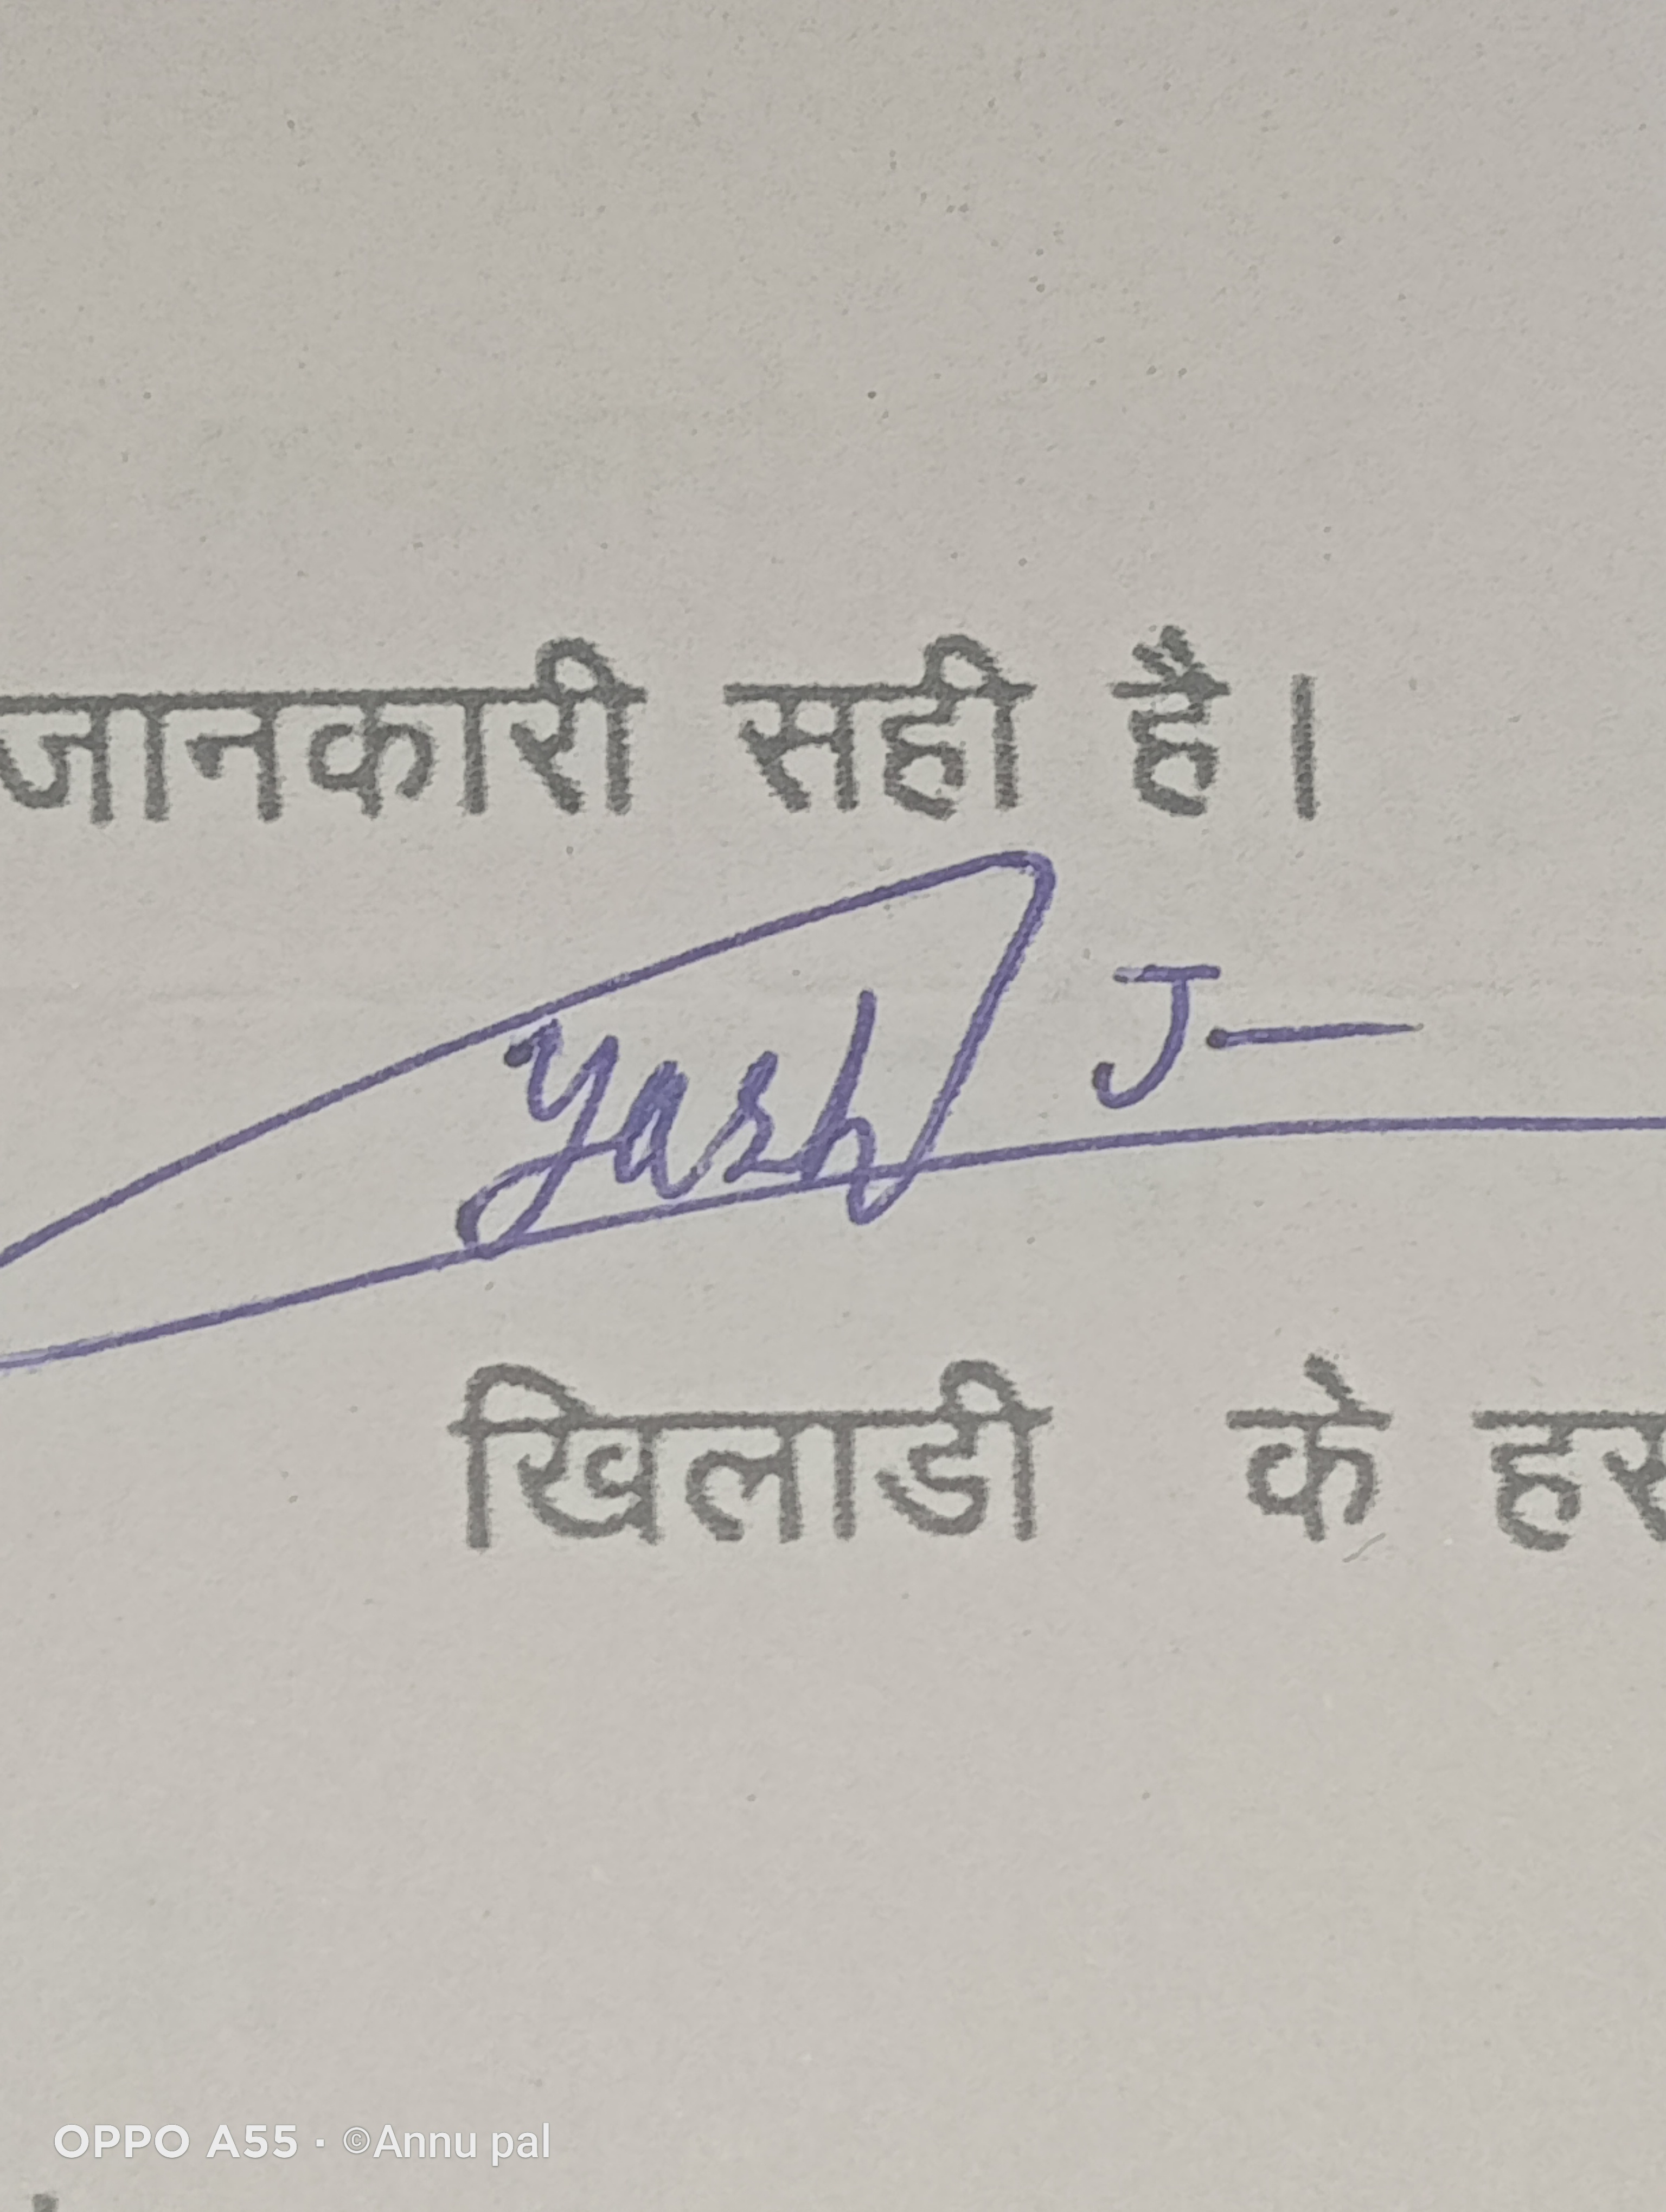 जानकारी सही है।
Yash J-
खिलाडी के हस
OPPO A55 · ©Annu pal